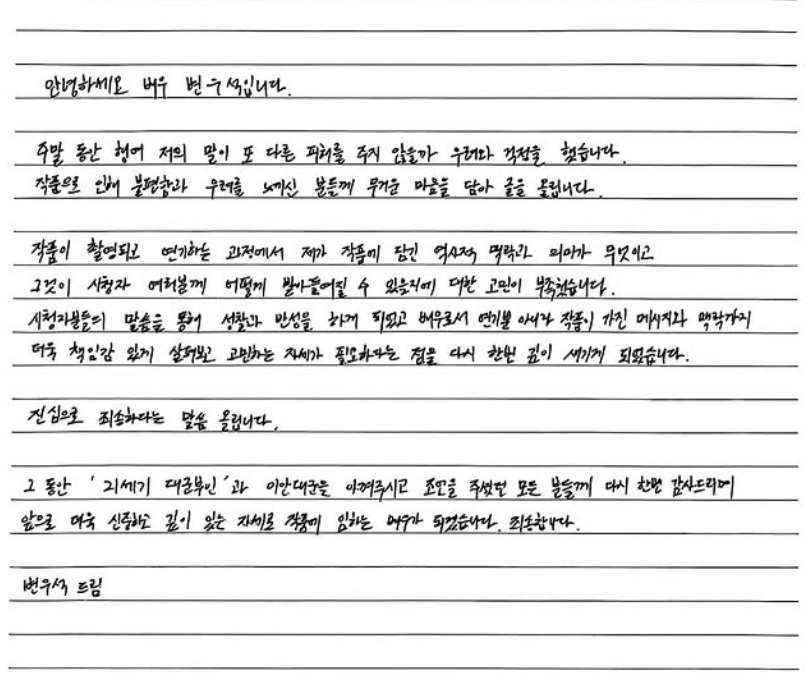 안녕하세요 배우 변우석입니다.
주말 동안 혹여 저의 말이 또 다른 피해를 주지 않을까 우려와 걱정을 했습니다.
작품으로 인해 불편함과 우려를 느끼신 분들께 무거운 마음을 담아 글을 올립니다.
작품이 촬영되고 연기하는 과정에서 제가 작품에 담긴 역사적 맥락과 의미가 무엇이고
그것이 시청자 여러분께 어떻게 받아들여질 수 있을지에 대한 고민이 부족했습니다.
시청자분들의 말씀을 통해 성찰과 반성을 하게 되었고 배우로서 연기뿐 아니라 작품이 가진 메시지와 맥락까지
더욱 책임감 있게 살펴보고 고민하는 자세가 필요하다는 점을 다시 한번 깊이 새기게 되었습니다.
진심으로 죄송하다는 말씀 올립니다.
그 동안 '21세기 대군부인'과 이안대군을 아껴주시고 조언을 주셨던 모든 분들께 다시 한번 감사드리며
앞으로 더욱 신중하고 깊이 있는 자세로 작품에 임하는 배우가 되겠습니다. 죄송합니다.
변우석 드림